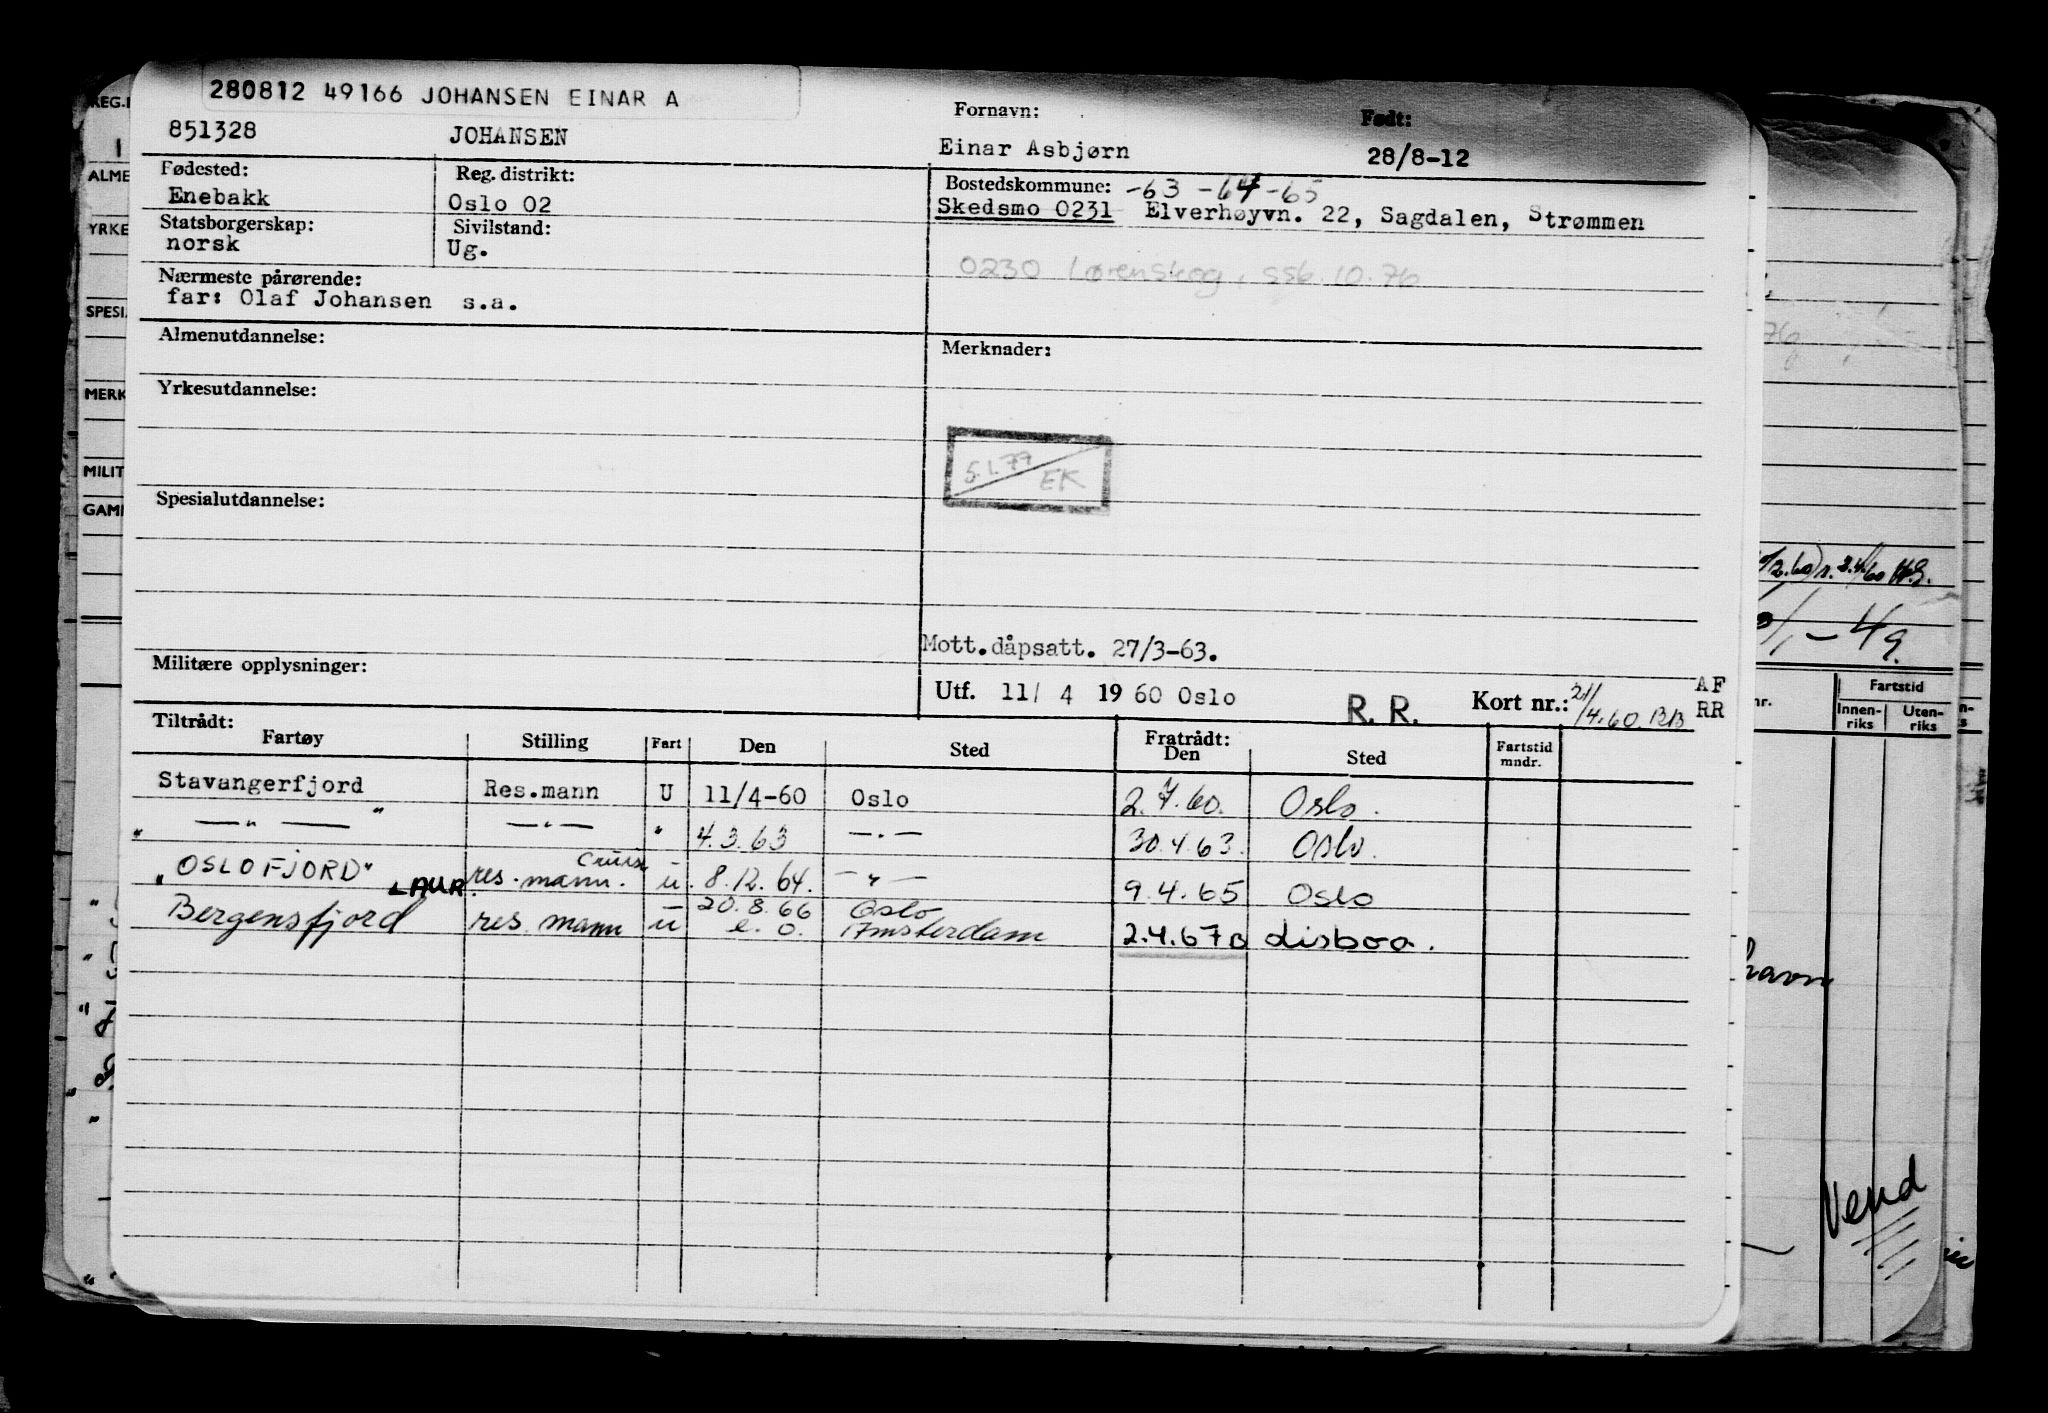 280812 49166 JOHANSEN EINAR A
851328 JOHANSEN
Fornavn:
Einar Asbjørn
Født:
28/8-12
Fødested:
Enebakk
Reg. distrikt:
Oslo 02
Bostedskommune: -63 -64 -65
Skedsmo 0231 Elverhøyvn. 22, Sagdalen, Strømmen
Statsborgerskap:
norsk
Sivilstand:
Ug.
0230 Lørenskog, ssb. 10.76
Nærmeste pårørende:
far: Olaf Johansen s.a.
Almenutdannelse:
Merknader:
Yrkesutdannelse:
5.1.77
EK
Spesialutdannelse:
Mott.dåpsatt. 27/3-63.
Militære opplysninger:
Utf. 11/ 4 19 60 Oslo R. R. Kort nr.: 21/4.60 BB
AF
RR
Tiltrådt:
Fartøy Stilling Fart Den Sted Fratrådt: Den Sted Fartstid mndr.
Stavangerfjord Res.mann U 11/4-60 Oslo 2.7.60. Oslo.
" — " — " — " — " 4.3.63 — " — 30.4.63. Oslo.
"OSLOFJORD" LAUR. res. mann. Cruise u. 8.12.64. — " — 9.4.65 Oslo
Bergensfjord res mann u 20.8.66 Oslo
e. o. Amsterdam 2.4.67 Lisboa.
REG.
ALME
YRKE
SPESI
MERK
MILIT
GAM
76
2.4/60
- 49.
nr.
Fartstid
Innen-
riks
Uten-
riks
havn
Vend